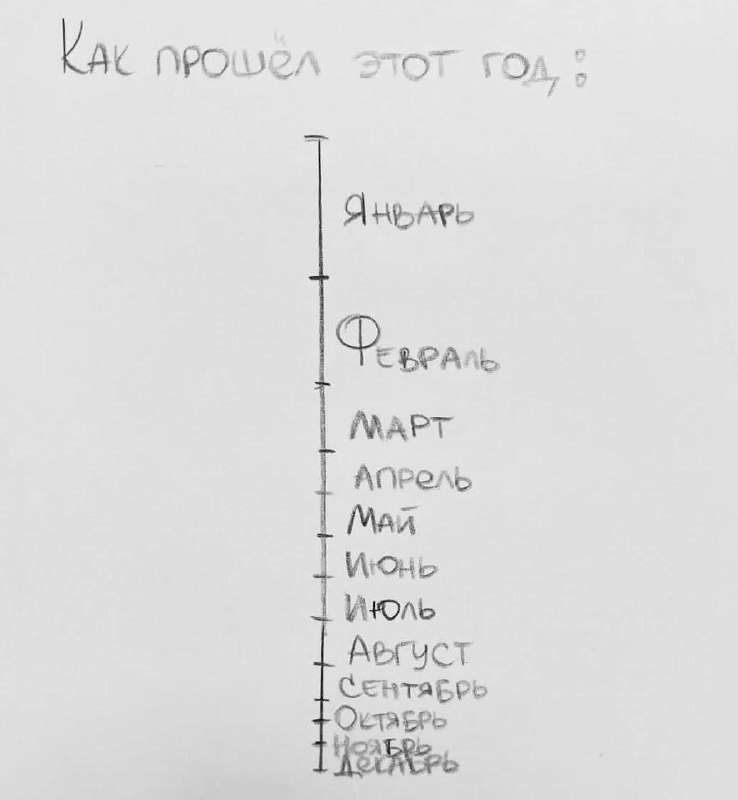 Как прошёл этот год:
Январь
Февраль
Март
Апрель
Май
Июнь
Июль
Август
Сентябрь
Октябрь
Ноябрь
Декабрь